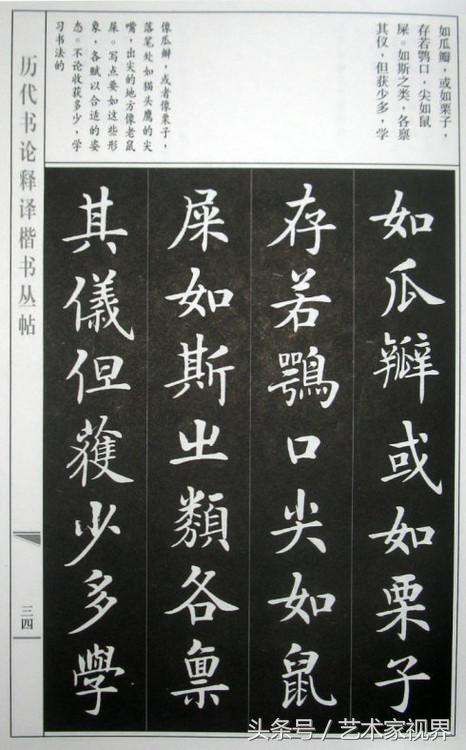 如瓜瓣，或如栗子，
存若鹗口，尖如鼠
屎。如斯之类，各禀
其仪，但获少多，学
像瓜瓣，或者像栗子，
落笔处如猫头鹰的尖
嘴，出尖的地方像老鼠
屎。写点要如这些形
象，各赋以合适的姿
态。不论收获多少，学
习书法的
如瓜瓣或如栗子
存若鶚口尖如鼠
屎如斯之類各禀
其儀但獲少多學
历代书论释译楷书丛帖
三四
头条号 / 艺术家视界